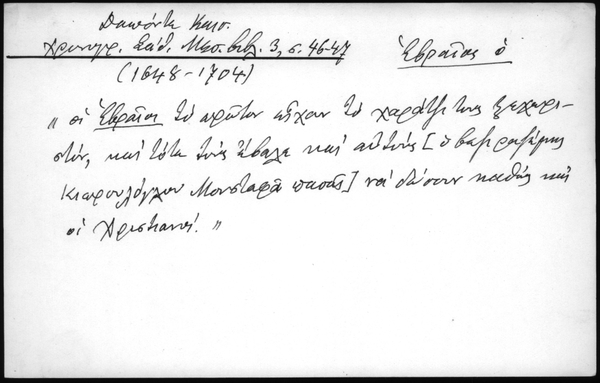 Δαπόντε Καισ.
Χρονογρ. Σάθ. Μεσ. Βιβλ. 3, σ. 46-47
Ἑβραῖος ὁ
(1648-1704)
"οἱ Ἑβραῖοι τὸ πρῶτον εἶχαν τὸ χαράτζι τους ξεχωρι-
στόν, καὶ τότε τοὺς ἔβαλε καὶ αὐτοὺς [ὁ βεζιραζέμης
Κιοπρουλόγλου Μουσταφᾶ πασᾶς] νὰ δώσουν καθὼς καὶ
οἱ Χριστιανοί."